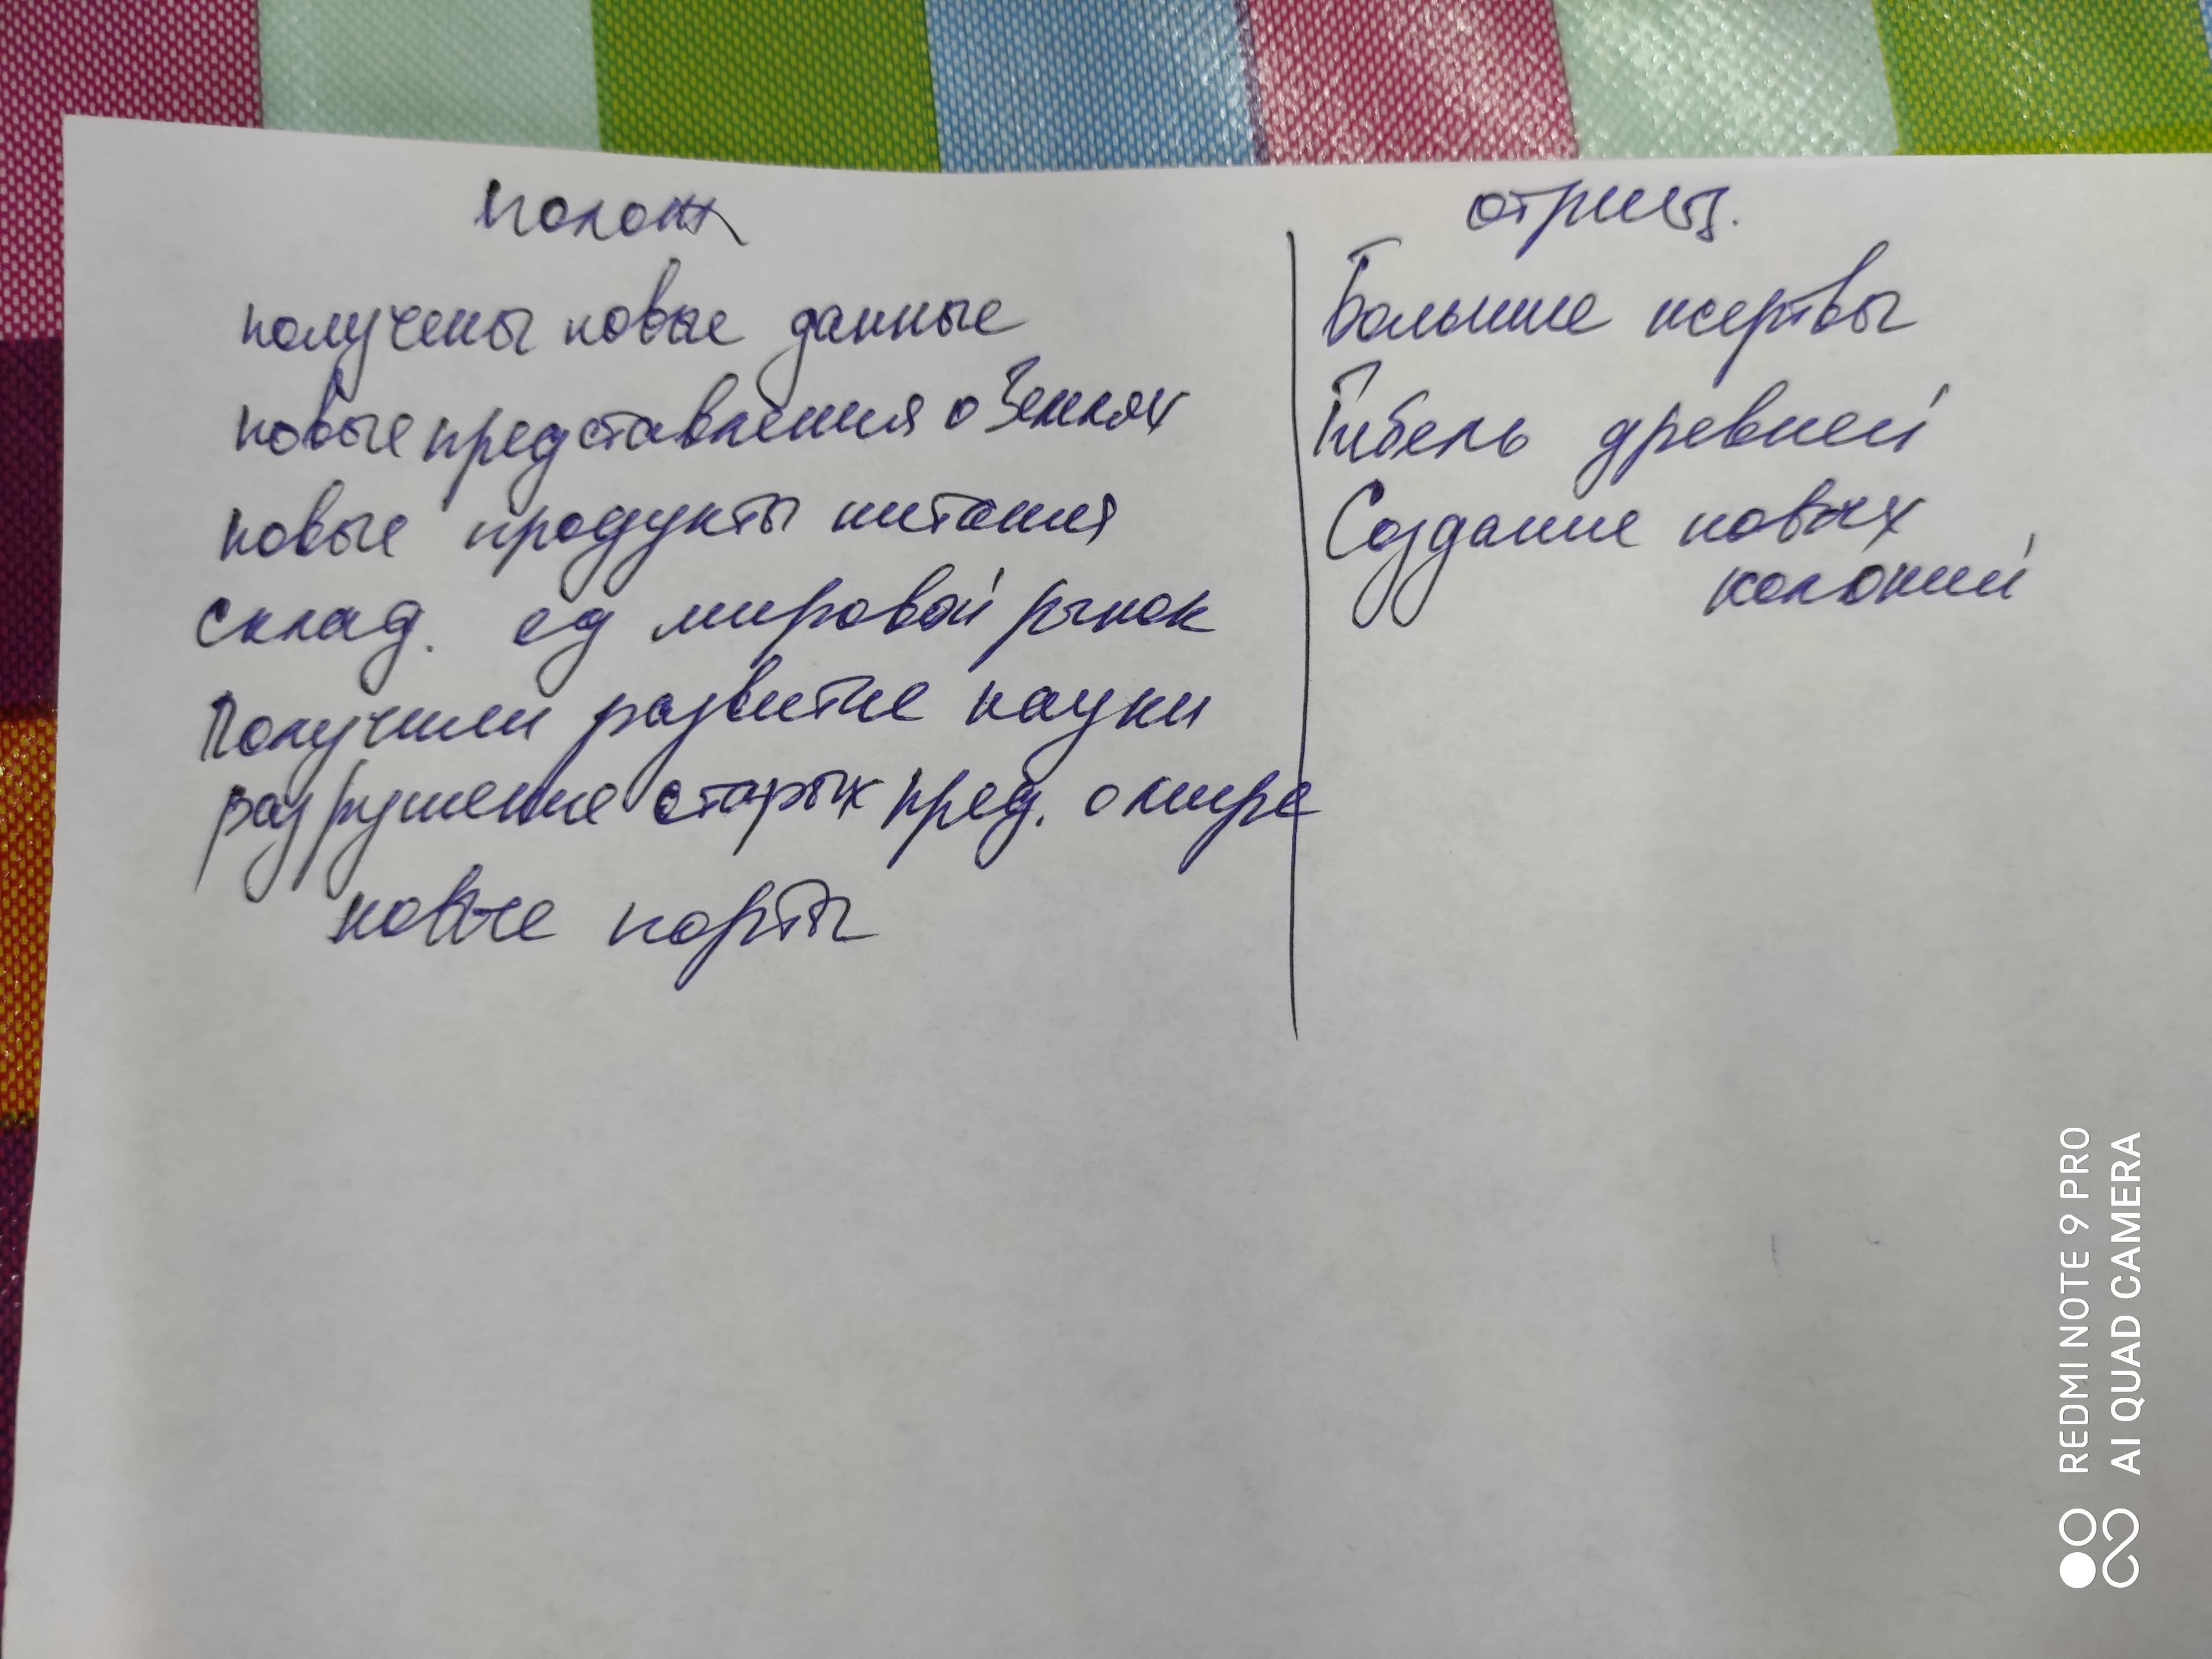 полож
получены новые данные
новые представления о Землях
новые продукты питания
склад. ед мировой рынок
Получили развитие науки
разрушение старых пред. о мире
новые порты
отриц.
Большие жертвы
Гибель древней
Создание новых
колоний
REDMI NOTE 9 PRO
AI QUAD CAMERA